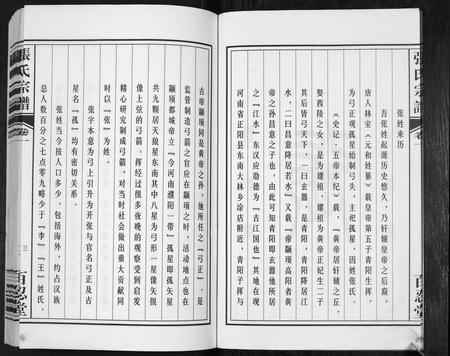 張氏宗譜
卷一
百忍堂
張姓来历
吾張姓起源历史悠久，乃轩辕皇帝之后裔，
唐人林宝《元和姓纂》載皇帝第五子青阳生挥，
为弓正观弧星始制弓矢，主祀弧星，因姓張氏。
《史记·五帝本纪》載，『黄帝居轩辕之丘，
娶西陵之女，是为嫘祖，嫘祖为黄帝正妃生二子
其后皆弓天下，一曰玄嚣是青阳，青阳降居江
水，二曰昌意降居若水』又載『帝颛顼高阳者黄
帝之孙昌意之子也，由此可知青阳即玄嚣他所居
之『江水』东汉应劭德为『古江国也』其地在
河南省正阳县东南大林乡涂店附近，青阳子挥与
古帝颛顼同是黄帝之孙，他所任之『弓正』，是
监管制造弓箭之官应在颛顼之时，活动地点也在
颛顼都城帝立『今河南濮阳一带』孤星即孤矢星
共九颗居天狼星东南其中八星为弓形一星像矢很
像上弦的弓箭。挥经过很多夜晚的观察受到启发
精心研究制成弓箭，对当时社会做出重大贡献同
时以『张』为姓。
张字本意为弓上引升为开张与官名弓正及古
星名『孤』均有密切关系。
张姓当今接人口多少，包括海外，约占汉族
总人数百分之七点零九略少于『李』『王』姓氏，
張氏宗譜
卷一
三
百忍堂